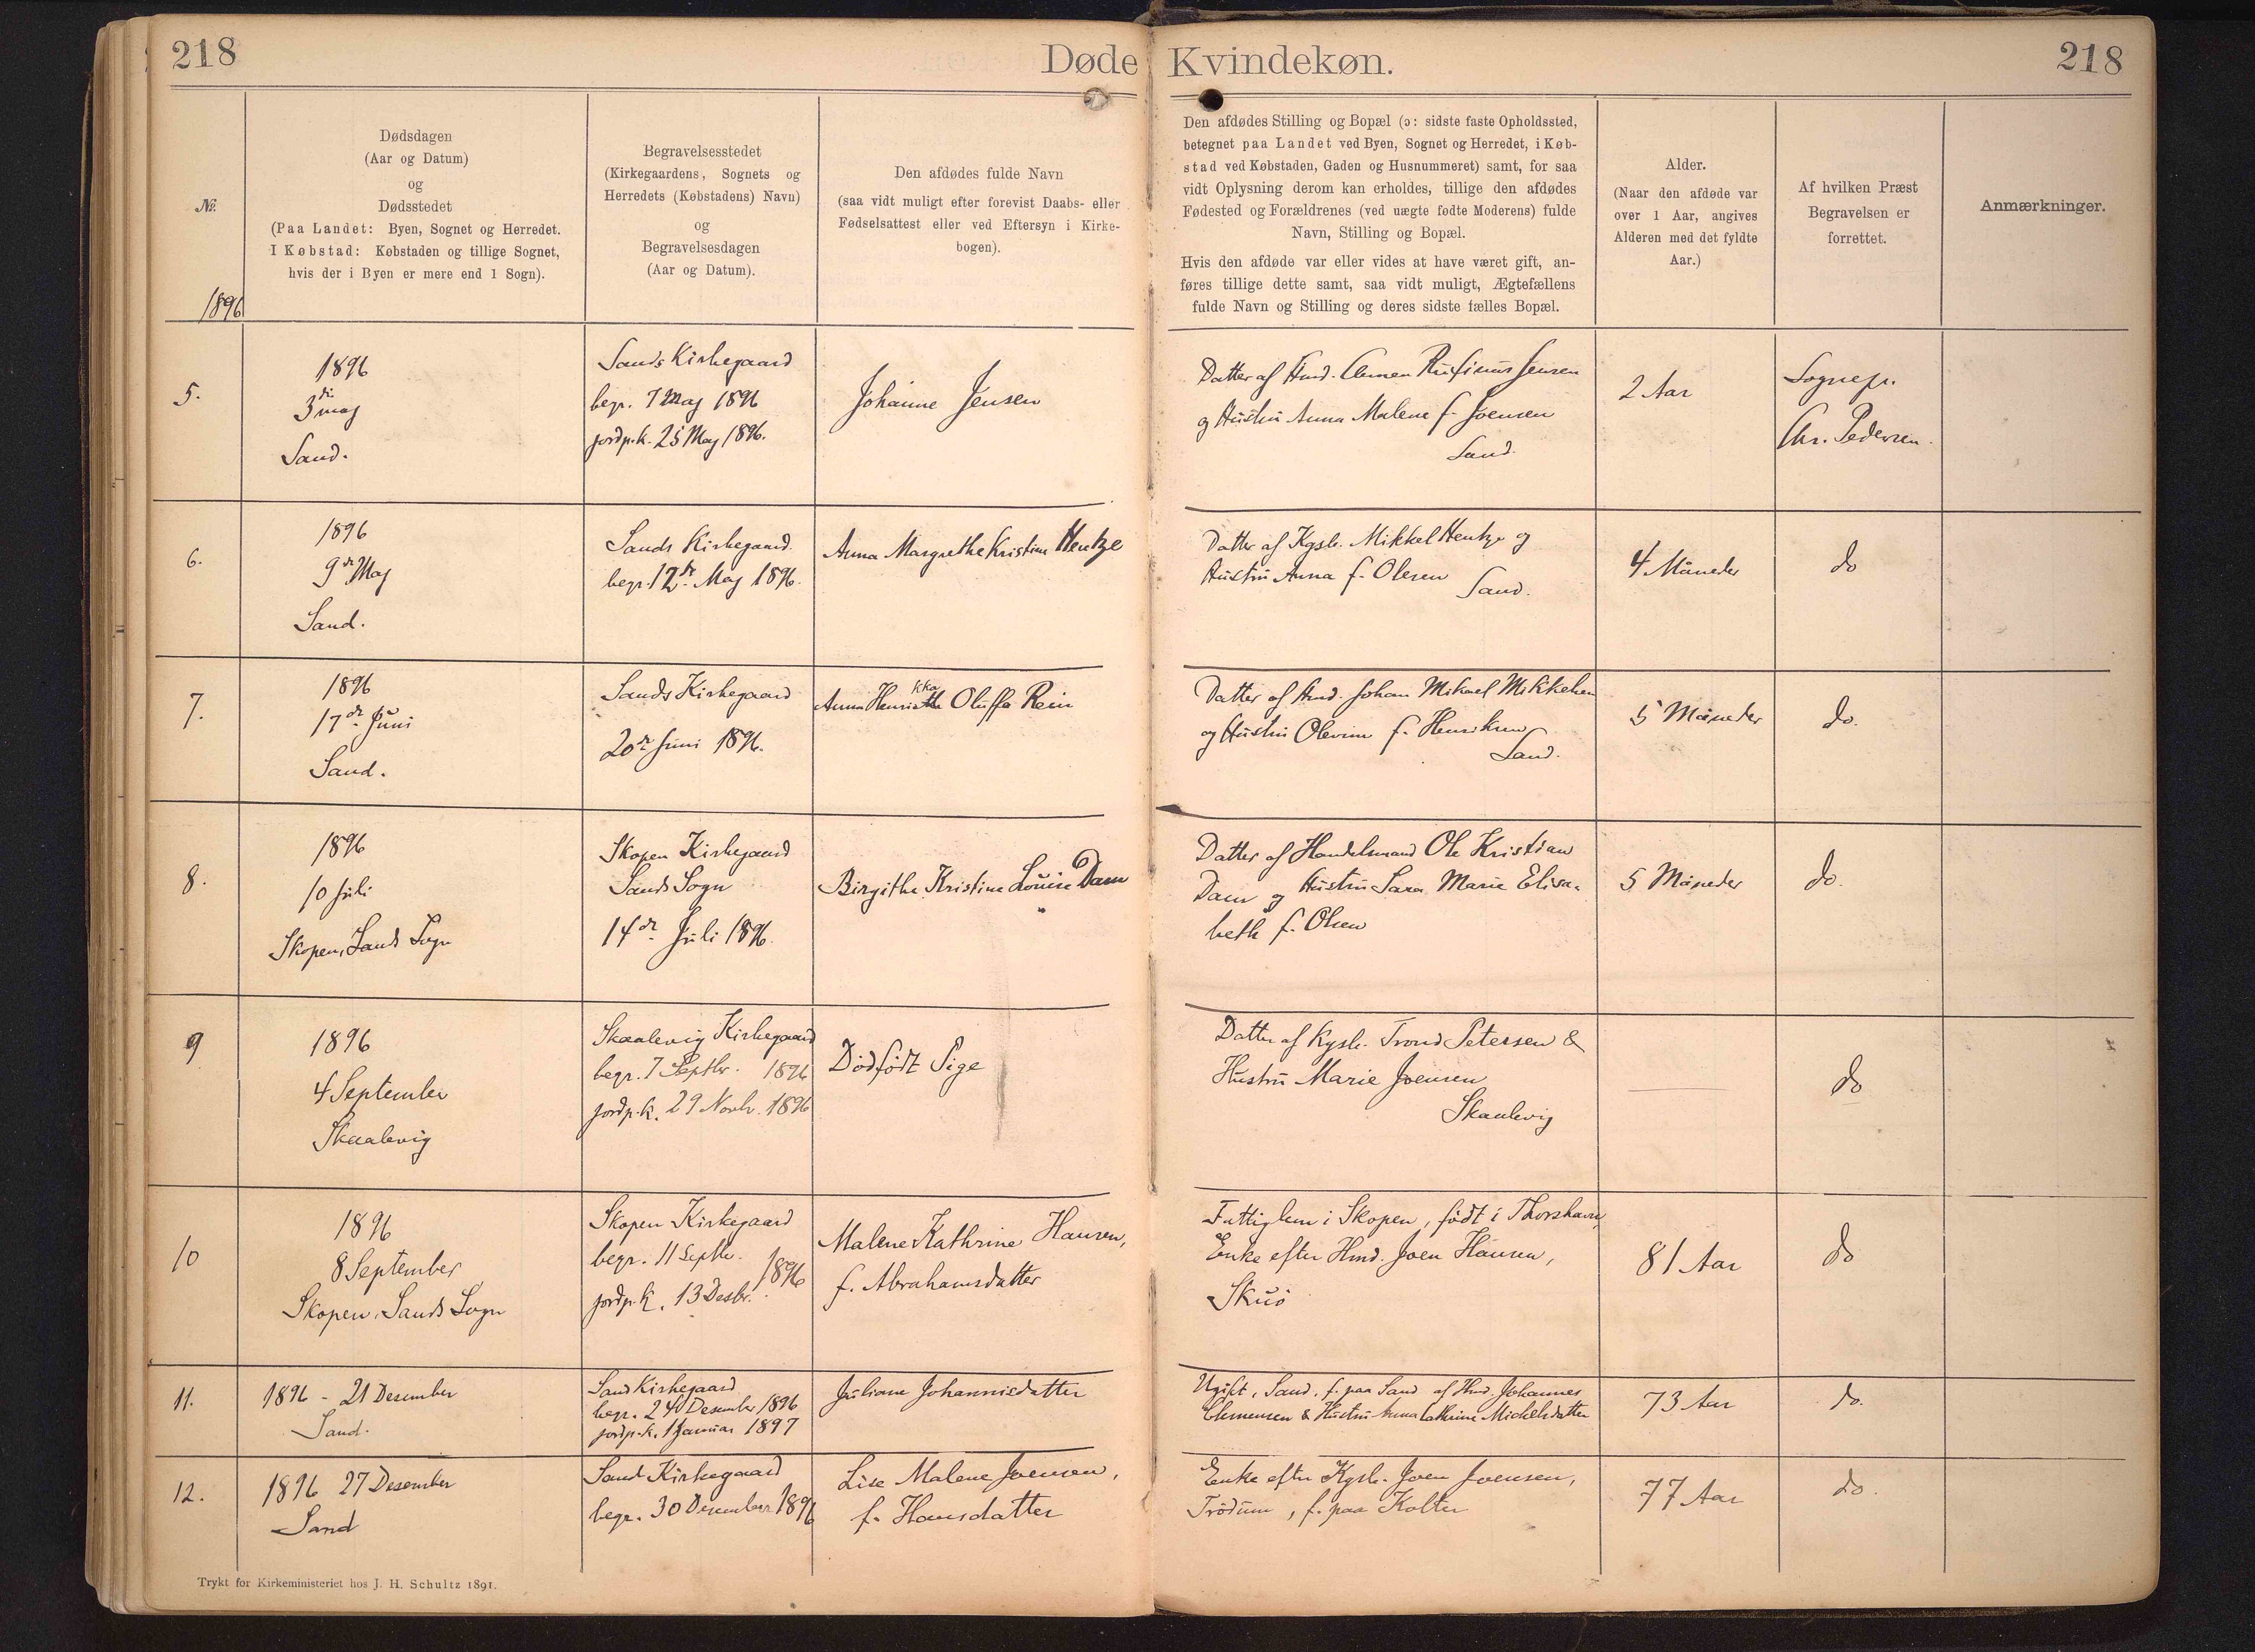 218
Døde Kvindekøn.
218
№.
1896
Dødsdagen
(Aar og Datum)
og
Dødsstedet
(Paa Landet: Byen, Sognet og Herredet.
I Købstad: Købstaden og tillige Sognet,
hvis der i Byen er mere end 1 Sogn).
Begravelsesstedet
(Kirkegaardens, Sognets og
Herredets (Købstadens) Navn)
og
Begravelsesdagen
(Aar og Datum).
Den afdødes fulde Navn
(saa vidt muligt efter forevist Daabs- eller
Fødselsattest eller ved Eftersyn i Kirke-
bogen).
Den afdødes Stilling og Bopæl (ɔ: sidste faste Opholdssted,
betegnet paa Landet ved Byen, Sognet og Herredet, i Køb-
stad ved Købstaden, Gaden og Husnummeret) samt, for saa
vidt Oplysning derom kan erholdes, tillige den afdødes
Fødested og Forældrenes (ved uægte fødte Moderens) fulde
Navn, Stilling og Bopæl.
Hvis den afdøde var eller vides at have været gift, an-
føres tillige dette samt, saa vidt muligt, Ægtefællens
fulde Navn og Stilling og deres sidste fælles Bopæl.
Alder.
(Naar den afdøde var
over 1 Aar, angives
Alderen med det fyldte
Aar.)
Af hvilken Præst
Begravelsen er
forrettet.
Anmærkninger.
5.
1896
3 di maj
Sand.
Sands Kirkegaard
begr. 7 Maj 1896
jordp.k. 25 Maj 1896.
Johanne Jensen
Datter af Hmd. Clemen Rufinus Jensen
og Hustru Anna Malene f. Joensen
Sand.
2 Aar
Sognepr.
Chr. Pedersen.
6.
1896
9 de Maj
Sand.
Sands Kirkegaard.
begr. 12 te Maj 1896.
Anna Margrethe Kristine Hentze
Datter af Kgsb. Mikkel Hentze og
Hustru Anna f. Olesen
Sand.
4 Måneder
do
7.
1896
17 de Juni
Sand.
Sands Kirkegaard
20 de Juni 1896.
kka
Anna Henriette Oluffa Rein
Datter af Hmd. Johan Mikael Mikkelsen
og Hustru Olevine f. Henriksen
Sand.
5 Måneder
do.
8.
1896
10 Juli
Skopen, Sands Sogn
Skopen Kirkegaard
Sands Sogn
14 de Juli 1896.
Birgithe Kristine Louise Dam
Datter af Handelsmand Ole Kristian
Dam og Hustru Sara Marie Elisa-
beth f. Olsen
5 Måneder
do.
9
1896
4 September
Skaalevig
Skaalevig Kirkegaard
begr. 7 Septbr. 1896
jordp.k. 29 Novb. 1896
Dødfødt Pige
Datter af Kgsb. Trond Petersen &
Hustru Marie Joensen
Skaalevig
do
10
1896
8 September
Skopen, Sands Sogn
Skopen Kirkegaard
begr. 11 Septbr.
1896
jordp.k. 13 Desbr.
Malene Kathrine Hansen,
f. Abrahamsdatter
Fattiglem i Skopen, født i Thorshavn,
Enke efter Hmd. Joen Hansen,
Skuö
81 Aar
do
11.
1896 - 21 Desember
Sand.
Sand Kirkegaard
begr. 24 Desember 1896
jordp.k. 1 Januar 1897
Juliane Johannisdatter
Ugift, Sand, f. paa Sand af Hmd. Johannes
Clemensen & Hustru Anna Cathrine Michelsdatter
73 Aar
do.
12.
1896 27 Desember
Sand
Sand Kirkegaard
begr. 30 Desember 1896
Lise Malene Joensen,
f. Hansdatter
Enke efter Kgsb. Joen Joensen,
Trödum, f. paa Kolter
77 Aar
do.
Trykt for Kirkeministeriet hos J. H. Schultz 1891.